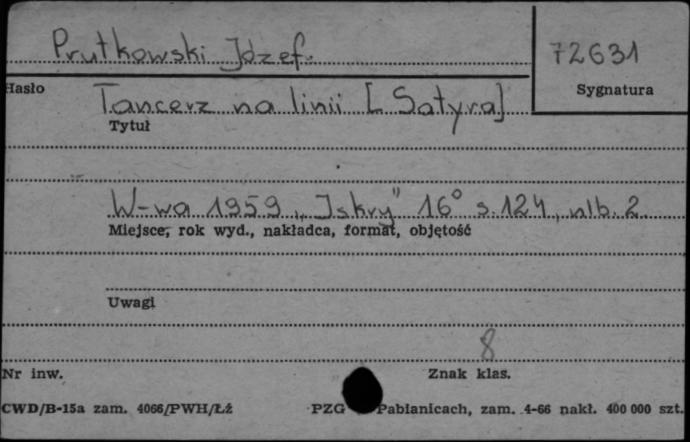 Prutkowski Józef.
72631
Hasło
Sygnatura
Tancerz na linii [Satyra]
Tytuł
W-wa 1959 „Iskry" 16° s. 124, nlb. 2
Miejsce, rok wyd., nakładca, format, objętość
Uwagi
8
Nr inw.
Znak klas.
CWD/B-15a zam. 4066/PWH/Łź PZG Pabianicach, zam. 4-66 nakł. 400 000 szt.